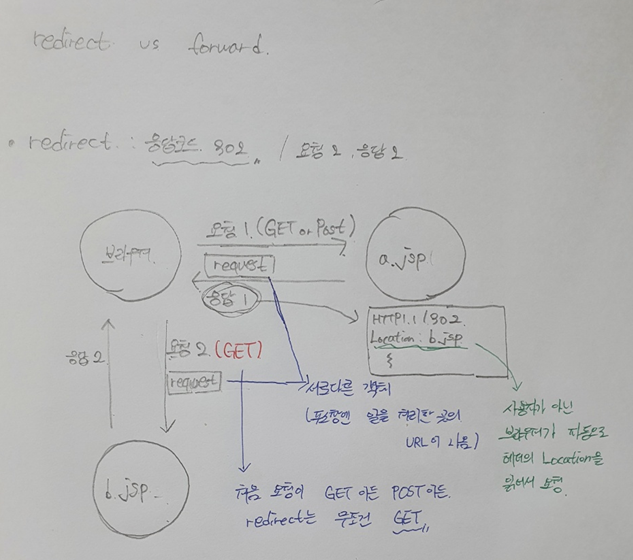 redirect vs forward.
• redirect : 응답코드 302, / 요청 2, 응답 2
브라우저.
요청 1. (GET or Post)
request
응답 1
a.jsp
HTTP1.1 / 302
Location : b.jsp
{
응답 2
요청 2. (GET)
request
b.jsp
서로다른 객체
(포스팅엔 일을 처리한 곳의
URL이 나옴)
처음 요청이 GET이든 POST이든.
redirect는 무조건 GET
사용자가 아닌
브라우저가 자동으로
헤더의 Location을
읽어서 요청.